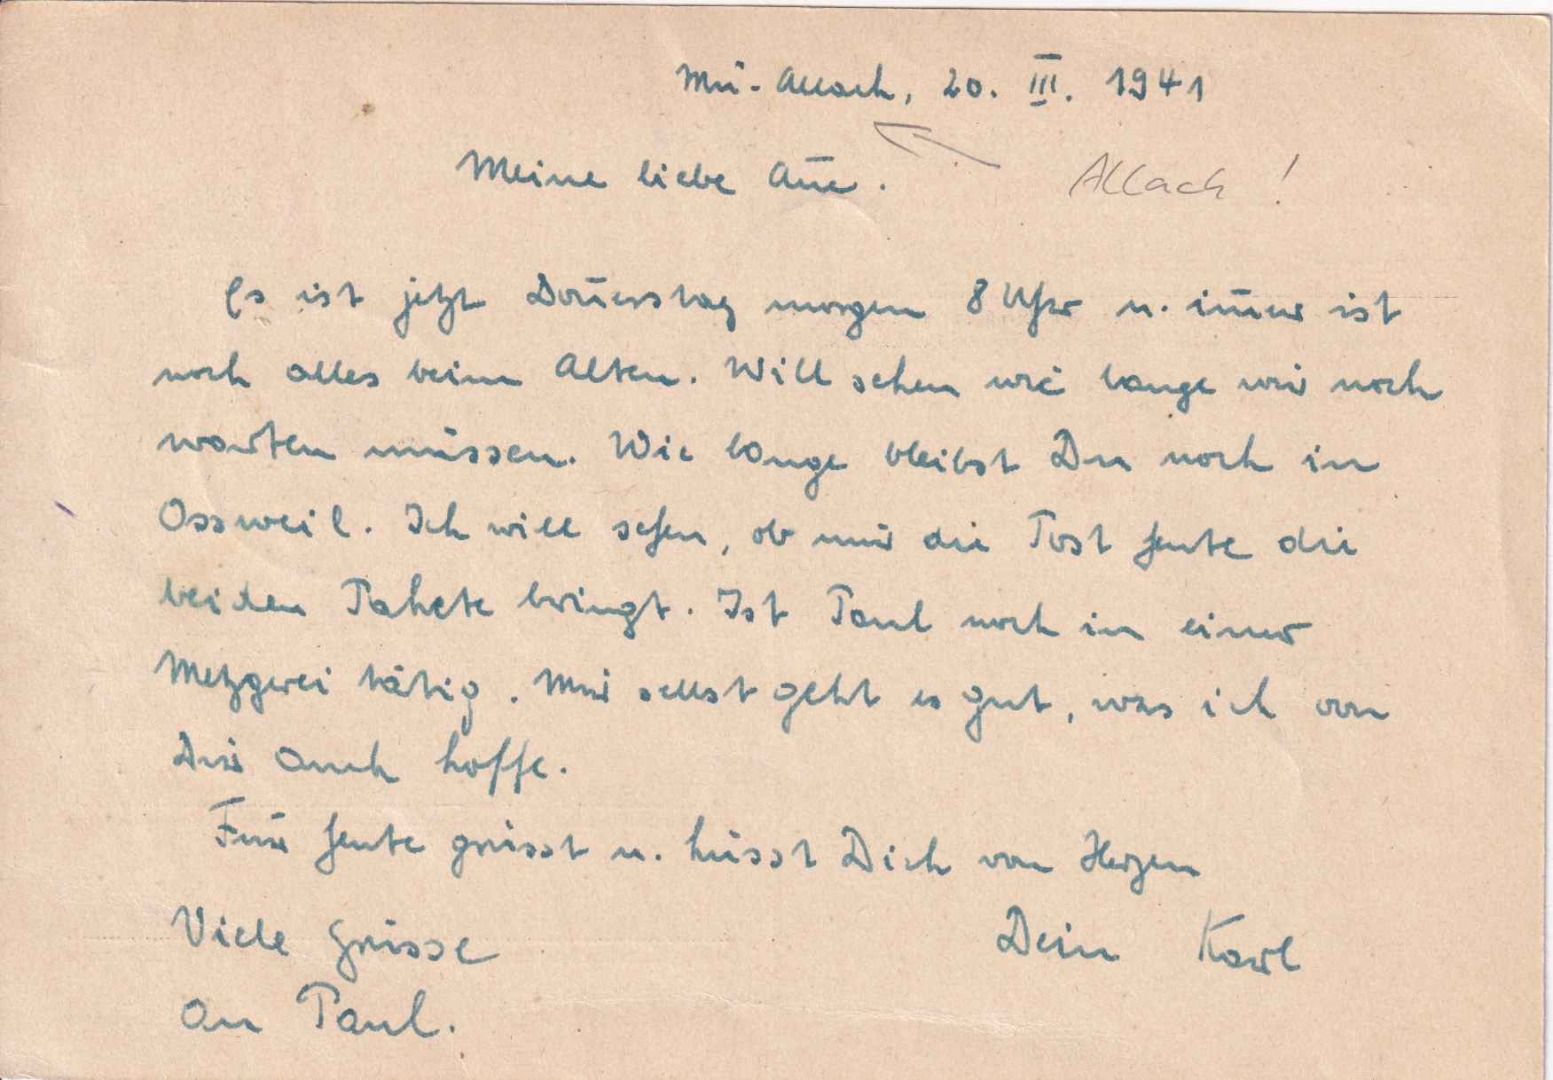 Mü-Allach, 20. III. 1941
Allach!
Meine liebe An̄e.
Es ist jetzt Don̄erstag morgen 8 Uhr u. im̄er ist
noch alles beim Alten. Will sehen wie lange wir noch
warten müssen. Wie lange bleibst Du noch in
Ossweil. Ich will sehen, ob mir die Post heute die
beiden Pakete bringt. Ist Paul noch in einer
Metzgerei tätig. Mir selbst geht es gut, was ich von
Dir auch hoffe.
Für heute grüsst u. küsst Dich von Herzen
Dein Karl
Viele Grüsse
an Paul.